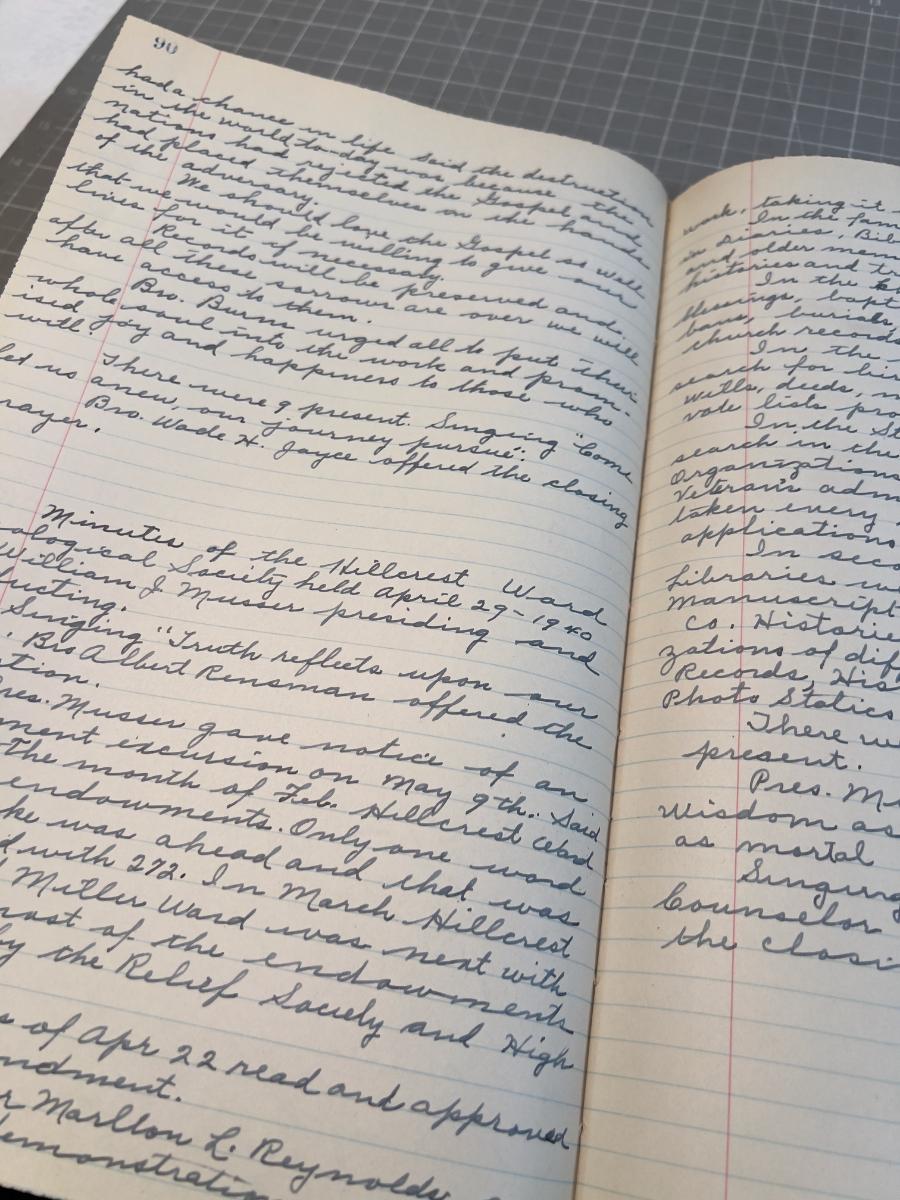 90
had a chance in life said the destruction
in the world to-day was because the
nations had rejected the Gospel and
had placed themselves in the hands
of the adversary.
We should love the Gospel so well
that we would be willing to give our
lives for it if necessary.
Records will be preserved and
after all these sorrows are over we will
have access to them.
Bro. Burm urged all to put their
whole soul into the work and prom-
ised joy and happiness to those who
will.
There were 9 present. Singing "Come
let us anew, our journey pursue".
Bro. Wade H. Jayce offered the closing
rayer.
Minutes of the Hillcrest Ward
ological Society held April 29-1940
William J Musser presiding and
ducting.
Singing "Truth reflects upon our
. Bro Albert Rensman offered the
ation.
res. Musser gave notice of an
ment excursion on May 9th. Said
The month of Feb. Hillcrest Ward
endowments. Only one ward
ke was ahead and that was
d with 272. In March Hillcrest
Miller Ward was next with
most of the endowments
by the Relief Society and High
s of Apr 22 read and approved
ndment.
r Marllon L. Reynolds
demonstration
work, taking it
In the fam
in Diaries, Bib
and older mem
histories and tr
In the
blessings, bapt
bans, burials,
church records
In the
search for
wills, deeds,
vote lists pro
In the St
search in the
Organizations
Veteran's adm
taken every
applications
In seco
Libraries
Manuscript
co. Historie
zations of dif
Records, His
Photo Statics
There we
present.
Pres. M
wisdom as
as mortal
Singing
Counselor
the closi